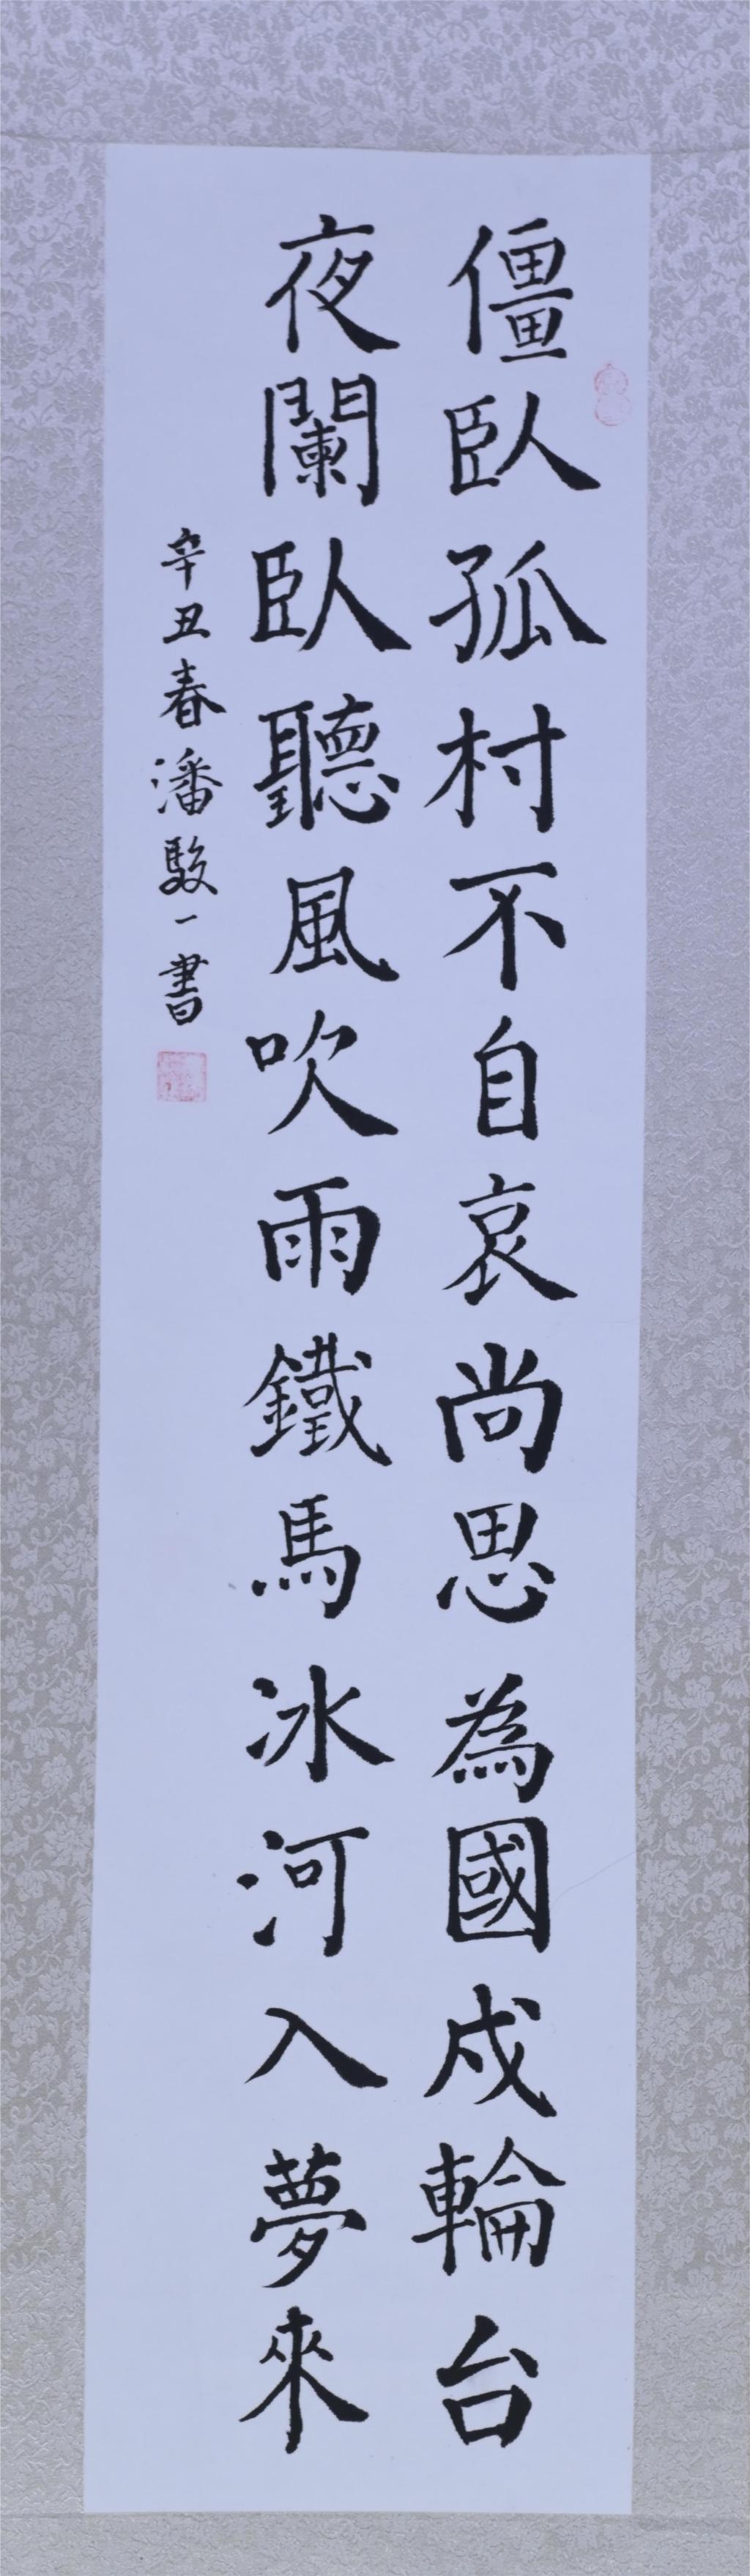 僵臥孤村不自哀尚思為國戍輪台
夜闌臥聽風吹雨鐵馬冰河入夢來
辛丑春潘駿一書